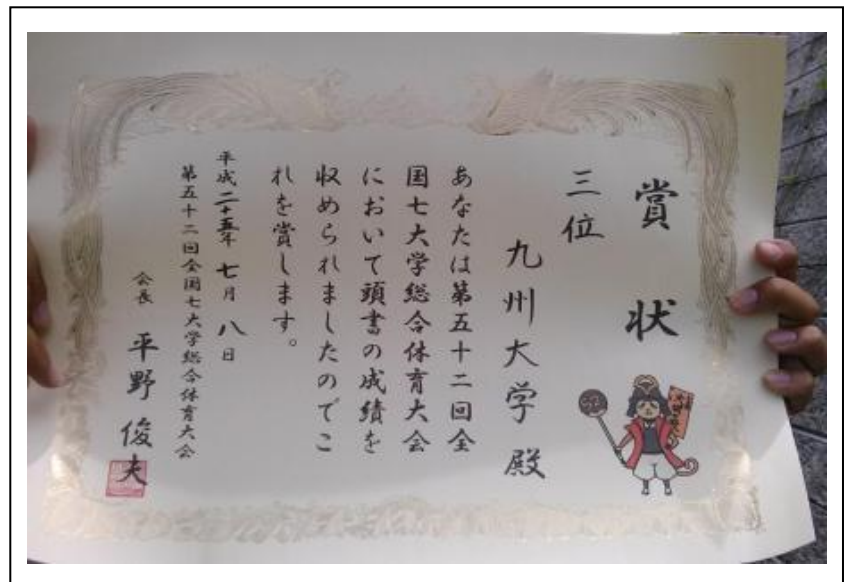 賞状
三位
九州大学殿
あなたは第五十二回全
国七大学総合体育大会
において頭書の成績を
収められましたのでこ
れを賞します。
平成二十五年七月八日
第五十二回全国七大学総合体育大会
会長 平野俊夫